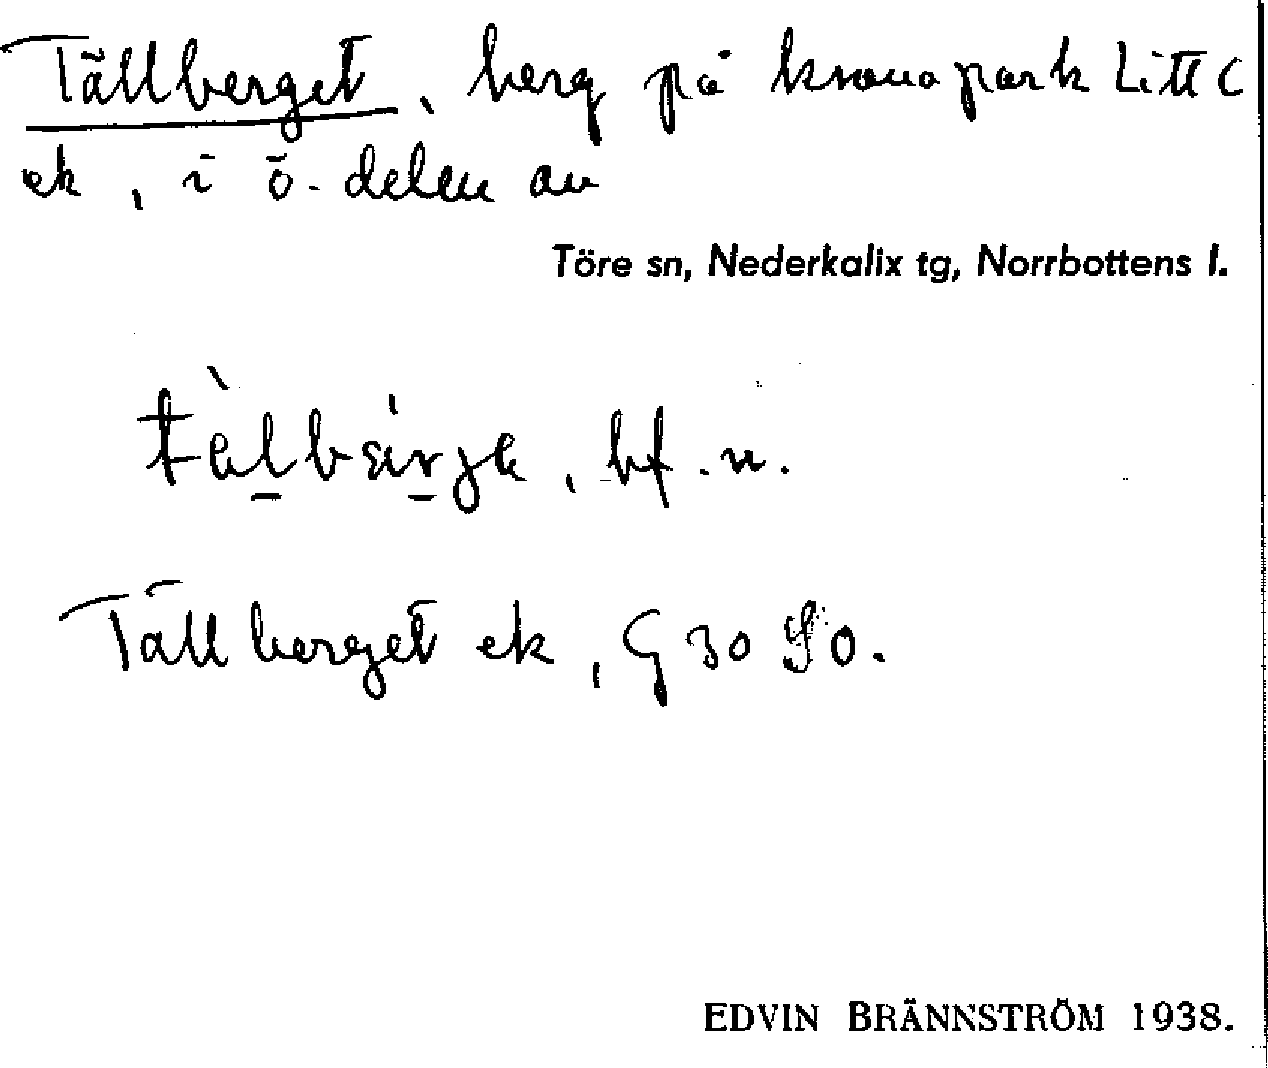 Tällberget, berg på kronopark Litt C
ek, i ö. delen av
Töre sn, Nederkalix tg, Norrbottens l.
bf. n.
Tällberget ek, G 30 So.
EDVIN BRÄNNSTRÖM 1938.